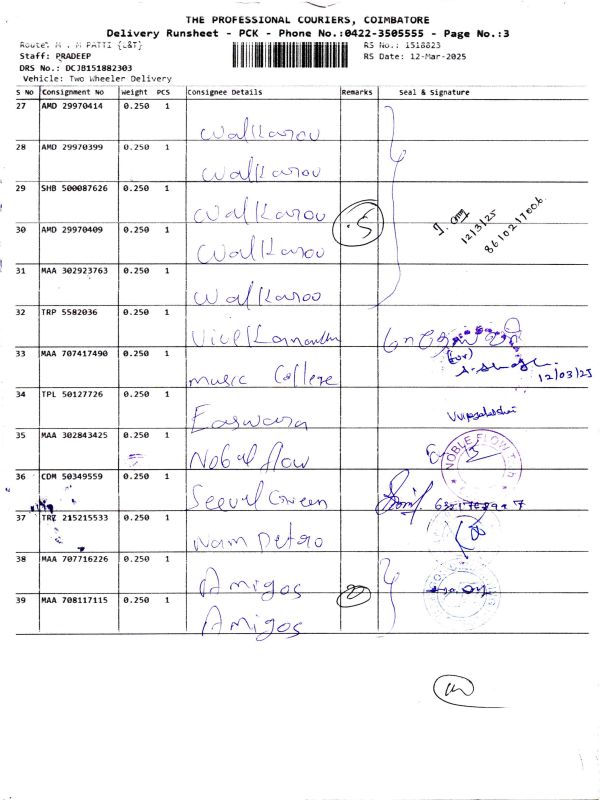 THE PROFESSIONAL COURIERS, COIMBATORE
Delivery Runsheet - PCK - Phone No.:0422-3505555 - Page No.:3
Route: M . M PATTI {L&T}
RS No.: 1518823
Staff: PRADEEP
RS Date: 12-Mar-2025
DRS No.: DCJB151882303
Vehicle: Two Wheeler Delivery
S No Consignment No Weight PCS Consignee Details Remarks Seal & Signature
27 AMD 29970414 0.250 1 Walkaroo
28 AMD 29970399 0.250 1 Walkaroo
29 SHB 500087626 0.250 1 Walkaroo 5
12/3/25
30 AMD 29970409 0.250 1 Walkaroo
31 MAA 302923763 0.250 1 Walkaroo
32 TRP 5582036 0.250 1
33 MAA 707417490 0.250 1 music College
12/03/25
34 TPL 50127726 0.250 1 Easwara
35 MAA 302843425 0.250 1 Nobal flow NOBLE FLOW
36 CDM 50349559 0.250 1
37 TRZ 215215533 0.250 1
38 MAA 707716226 0.250 1 Amigos
39 MAA 708117115 0.250 1 Amigos